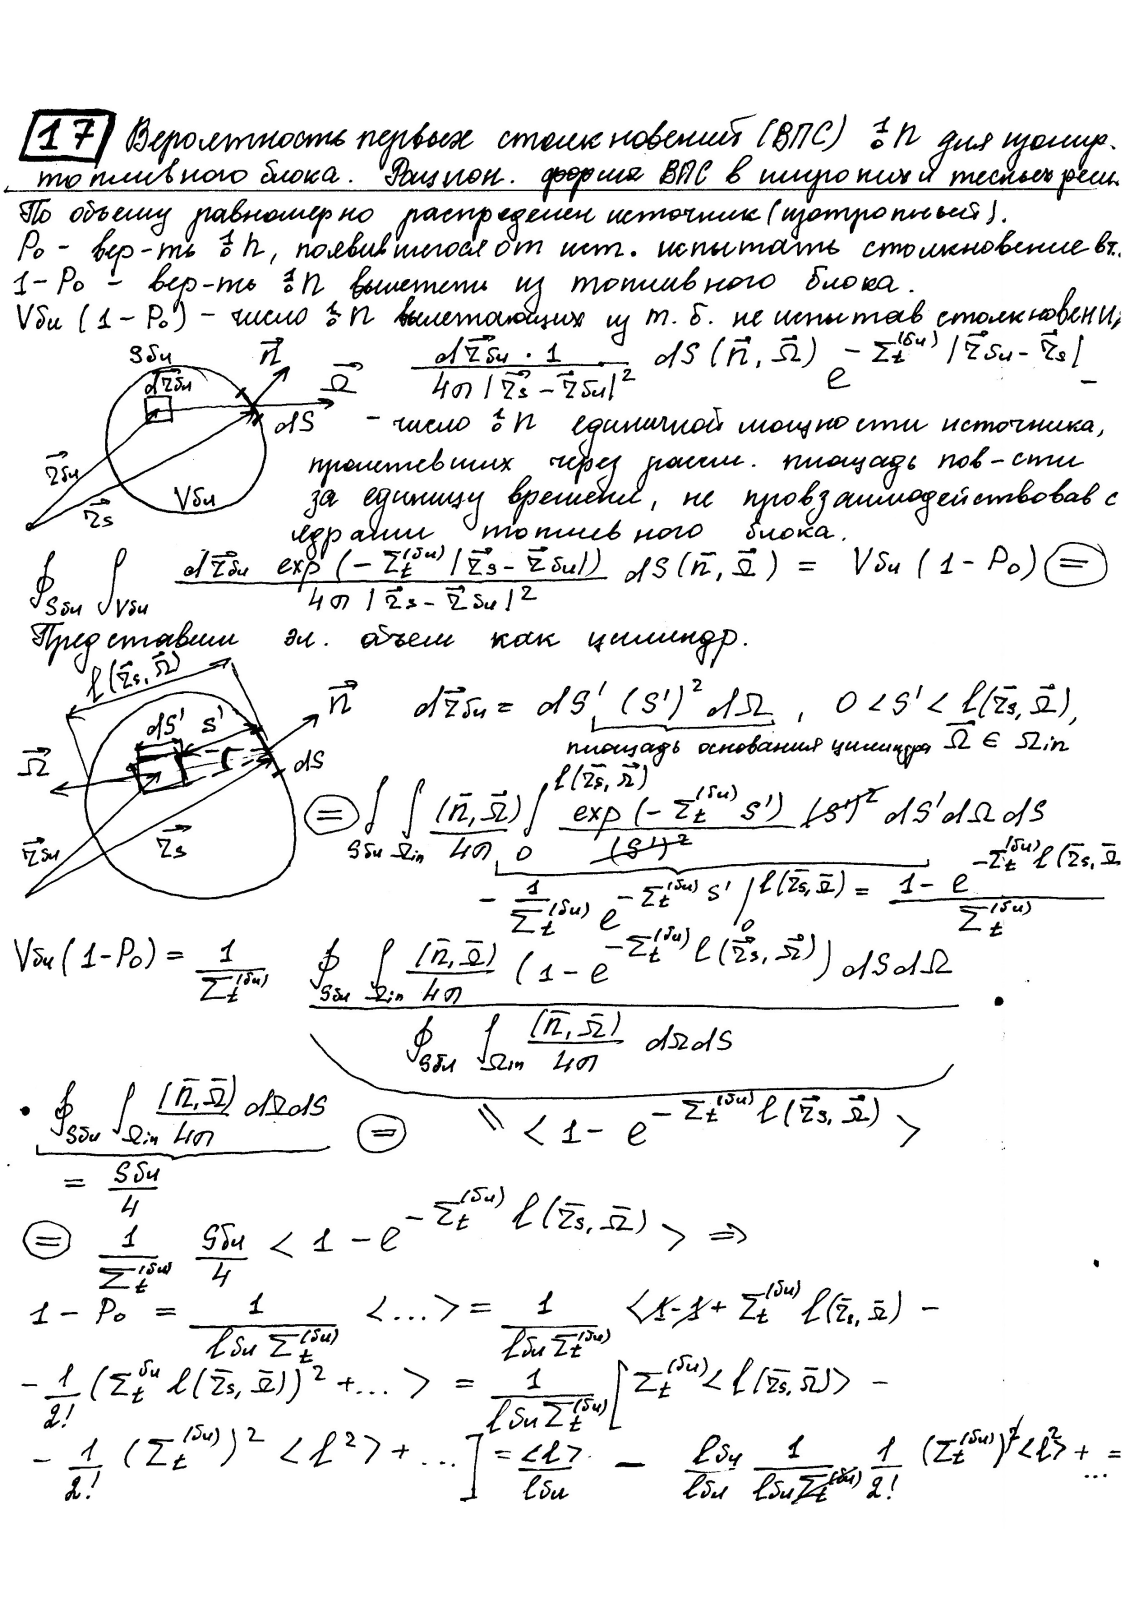 17 Вероятность первых столкновений (ВПС) ¹₀n для изолир.
топливного блока. Рацион. форма ВПС в широких и тесных реш.
По объему равномерно распределен источник (изотропный).
P₀ - вер-ть ¹₀n, появившегося от ист. испытать столкновение вт.
1-P₀ - вер-ть ¹₀n вылететь из топливного блока.
Vбл (1-P₀) - число ¹₀n вылетающих из т. б. не испытав столкновений
Sбл n⃗ dr⃗бл · 1 / 4π|r⃗s - r⃗бл|² dS (n⃗, Ω⃗) e^(-Σt^(бл) |r⃗бл - r⃗s|) -
dr⃗бл Ω⃗ dS r⃗бл r⃗s Vбл
- число ¹₀n единичной мощности источника,
пролетевших через рассм. площадь пов-сти
за единицу времени, не провзаимодействовав с
ядрами топливного блока.
∮Sбл ∫Vбл dr⃗бл exp(-Σt^(бл) |r⃗s - r⃗бл|) / 4π|r⃗s - r⃗бл|² dS(n̄, Ω̄) = Vбл (1-P₀) (=)
Представим эл. объем как цилиндр.
l(r̄s, Ω⃗) dS' S' n⃗ dS Ω⃗ r⃗бл r⃗s
dr⃗бл = dS' (S')² dΩ, 0 < S' < l(r̄s, Ω⃗),
площадь основания цилиндра Ω⃗ ∈ Ωin
(=) ∮Sбл ∫Ωin (n̄, Ω̄)/4π ∫₀^l(r̄s, Ω⃗) exp(-Σt^(бл) S') / (S')² (S')² dS' dΩ dS
- 1/Σt^(бл) e^(-Σt^(бл) S') |₀^l(r̄s, Ω̄) = (1 - e^(-Σt^(бл) l(r̄s, Ω̄)) / Σt^(бл)
Vбл (1-P₀) = 1/Σt^(бл) ∮Sбл ∫Ωin (n̄, Ω̄)/4π (1 - e^(-Σt^(бл) l(r⃗s, Ω⃗))) dS dΩ •
∮Sбл ∫Ωin (n̄, Ω̄)/4π dΩ dS
• ∮Sбл ∫Ωin (n̄, Ω̄)/4π dΩ dS (=) < 1 - e^(-Σt^(бл) l(r⃗s, Ω⃗)) >
= Sбл/4
(=) 1/Σt^(бл) Sбл/4 < 1 - e^(-Σt^(бл) l(r̄s, Ω̄)) > ⇒
1 - P₀ = 1/(l̄бл Σt^(бл)) <...> = 1/(l̄бл Σt^(бл)) <1-1 + Σt^(бл) l(r̄s, Ω̄) -
- 1/2! (Σt^бл l(r̄s, Ω̄))² + ... > = 1/(l̄бл Σt^(бл)) [Σt^(бл) <l(r̄s, Ω̄)> -
- 1/2! (Σt^(бл))² <l²> + ...] = <l>/l̄бл - l̄бл/l̄бл 1/(l̄бл Σt^(бл)) 1/2! (Σt^(бл))² <l²> + ... =